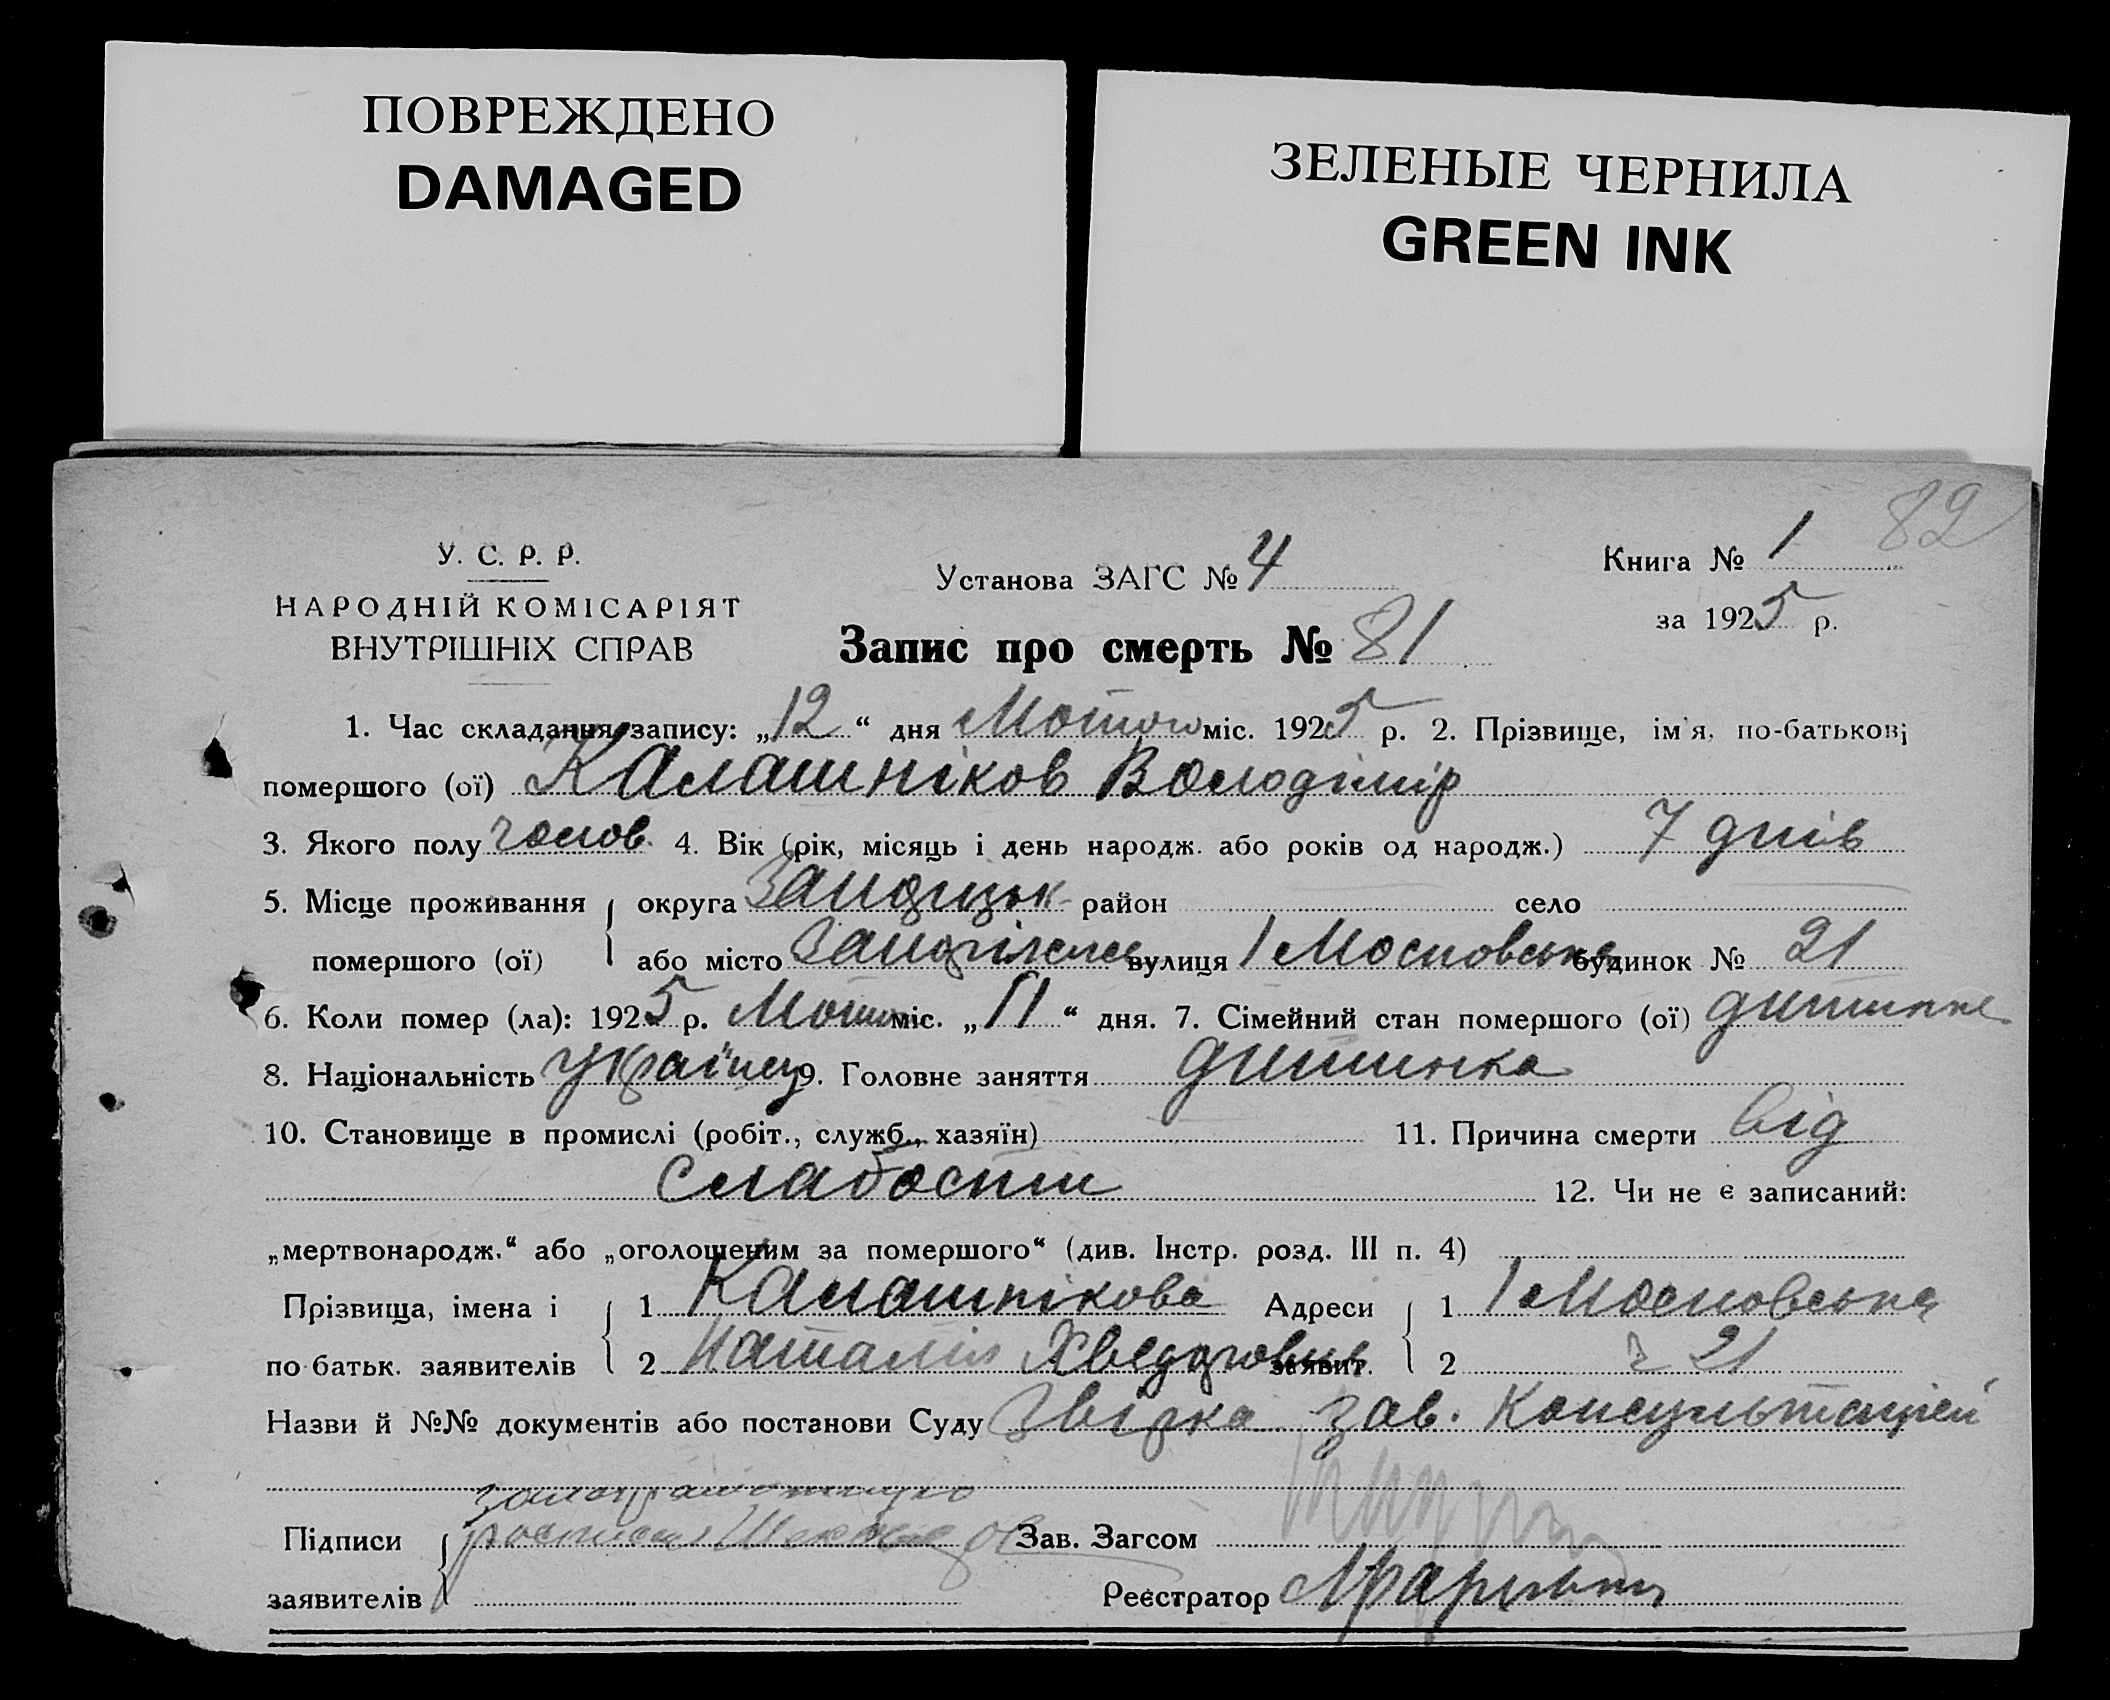 ПОВРЕЖДЕНО
DAMAGED
ЗЕЛЕНЫЕ ЧЕРНИЛА
GREEN INK
82
У. С. Р. Р.
НАРОДНІЙ КОМІСАРІЯТ
ВНУТРІШНІХ СПРАВ
Установа ЗАГС № 4
Книга № 1
за 1925 р.
Запис про смерть № 81
1. Час складання запису: „12“ дня Мотого міс. 1925 р. 2. Прізвище, ім'я, по-батькові
помершого (ої) Калашніков Володімір
3. Якого полу чолов. 4. Вік (рік, місяць і день народж. або років од народж.) 7 днів
5. Місце проживання округа район село
помершого (ої) або місто вулиця 1 Московська будинок № 21
6. Коли помер (ла): 1925 р. міс. „11“ дня. 7. Сімейний стан помершого (ої) дитинка
8. Національність Українец 9. Головне заняття дитинка
10. Становище в промислі (робіт., служб., хазяїн) 11. Причина смерти від
слабости 12. Чи не є записаний:
„мертвонародж.“ або „оголошеним за помершого“ (див. Інстр. розд. III п. 4)
Прізвища, імена і 1 Калашнікова Адреси 1 1 Московська
по батьк. заявителів 2 Наталія Хведоровна заявит. 2 21
Назви й №№ документів або постанови Суду зав. Консультацієй
Підписи Зав. Загсом
заявителів Реєстратор